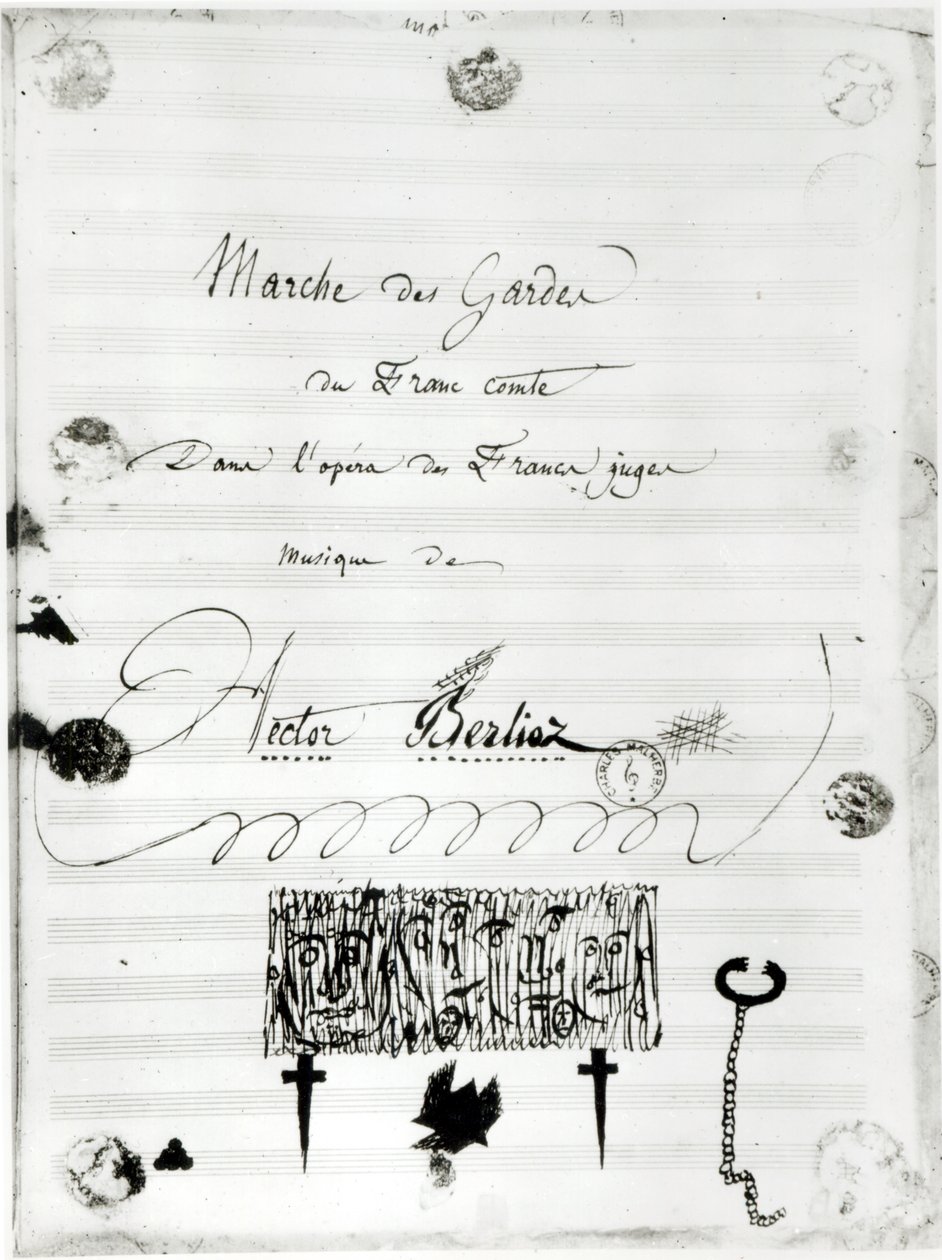 Marche des Gardes
du Franc comte
Dans l'opéra des Francs juges
Musique de
Hector Berlioz
CHARLES MALHERBE